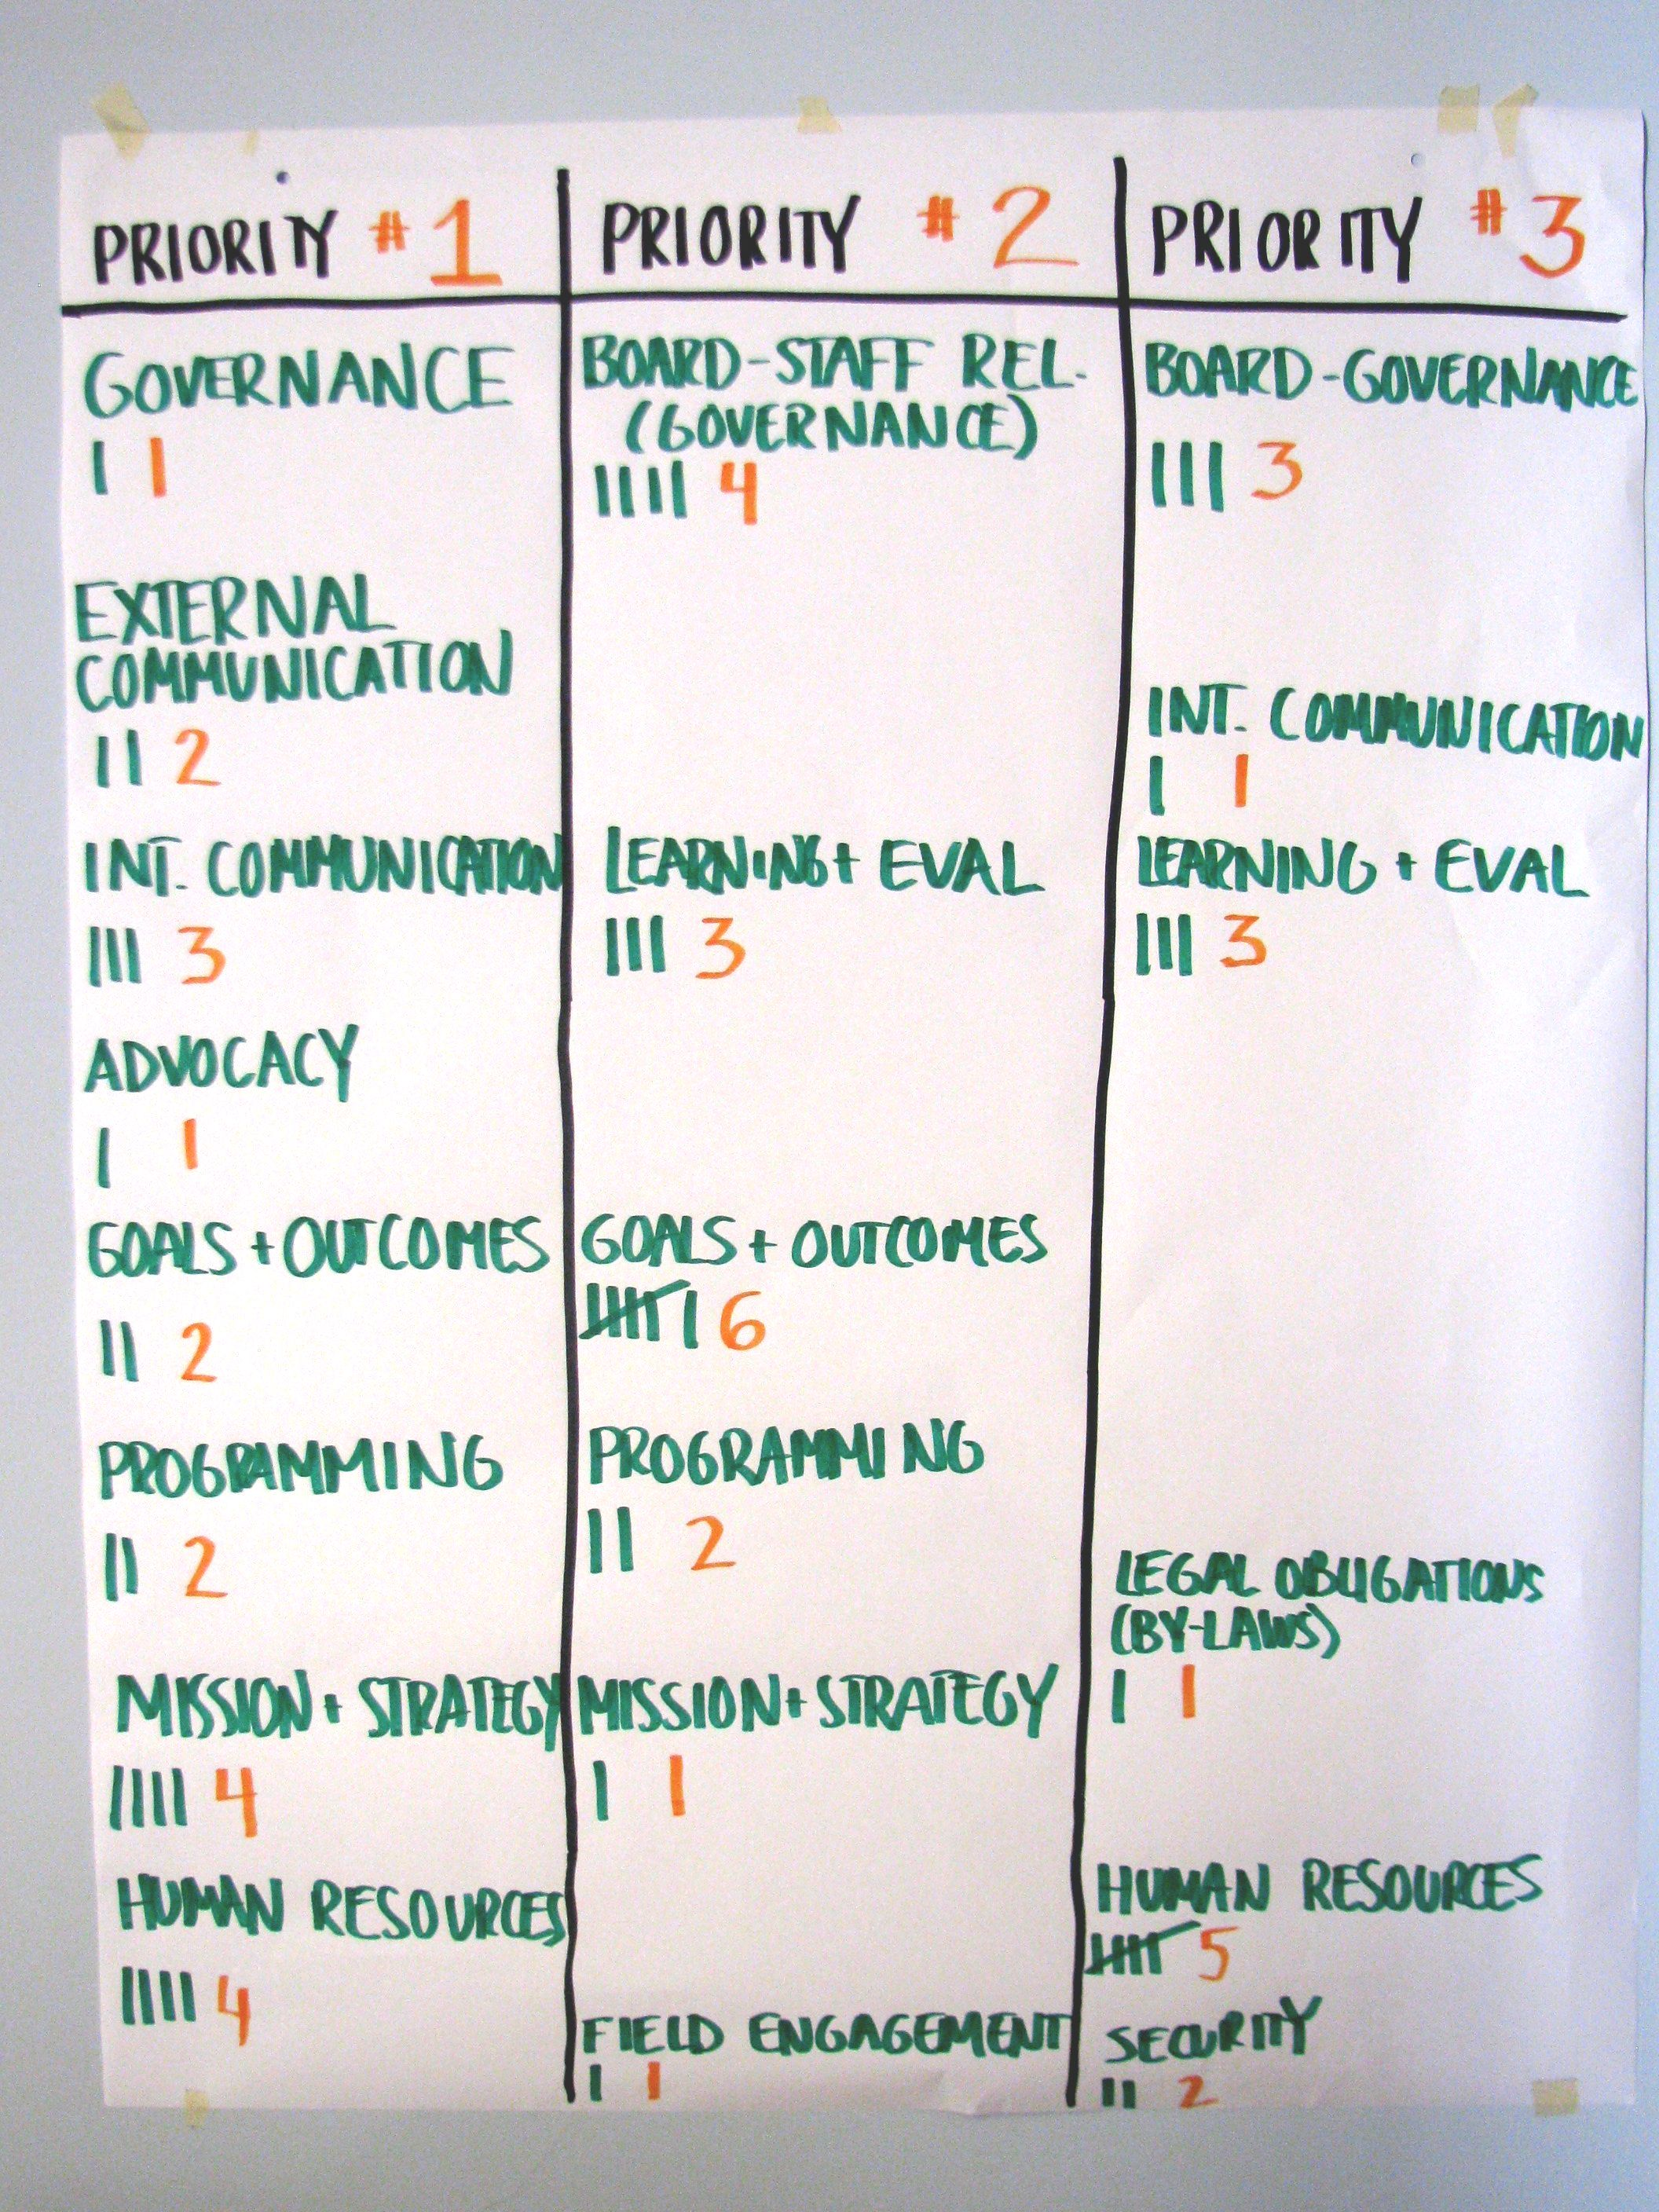 PRIORITY #1
GOVERNANCE
| 1
EXTERNAL
COMMUNICATION
|| 2
INT. COMMUNICATION
||| 3
ADVOCACY
| 1
GOALS + OUTCOMES
|| 2
PROGRAMMING
|| 2
MISSION + STRATEGY
|||| 4
HUMAN RESOURCES
|||| 4
PRIORITY #2
BOARD-STAFF REL.
(GOVERNANCE)
|||| 4
LEARNING + EVAL
||| 3
GOALS + OUTCOMES
||||| | 6
PROGRAMMING
|| 2
MISSION + STRATEGY
| 1
FIELD ENGAGEMENT
| 1
PRIORITY #3
BOARD-GOVERNANCE
||| 3
INT. COMMUNICATION
| 1
LEARNING + EVAL
||| 3
LEGAL OBLIGATIONS
(BY-LAWS)
| 1
HUMAN RESOURCES
||||| 5
SECURITY
|| 2